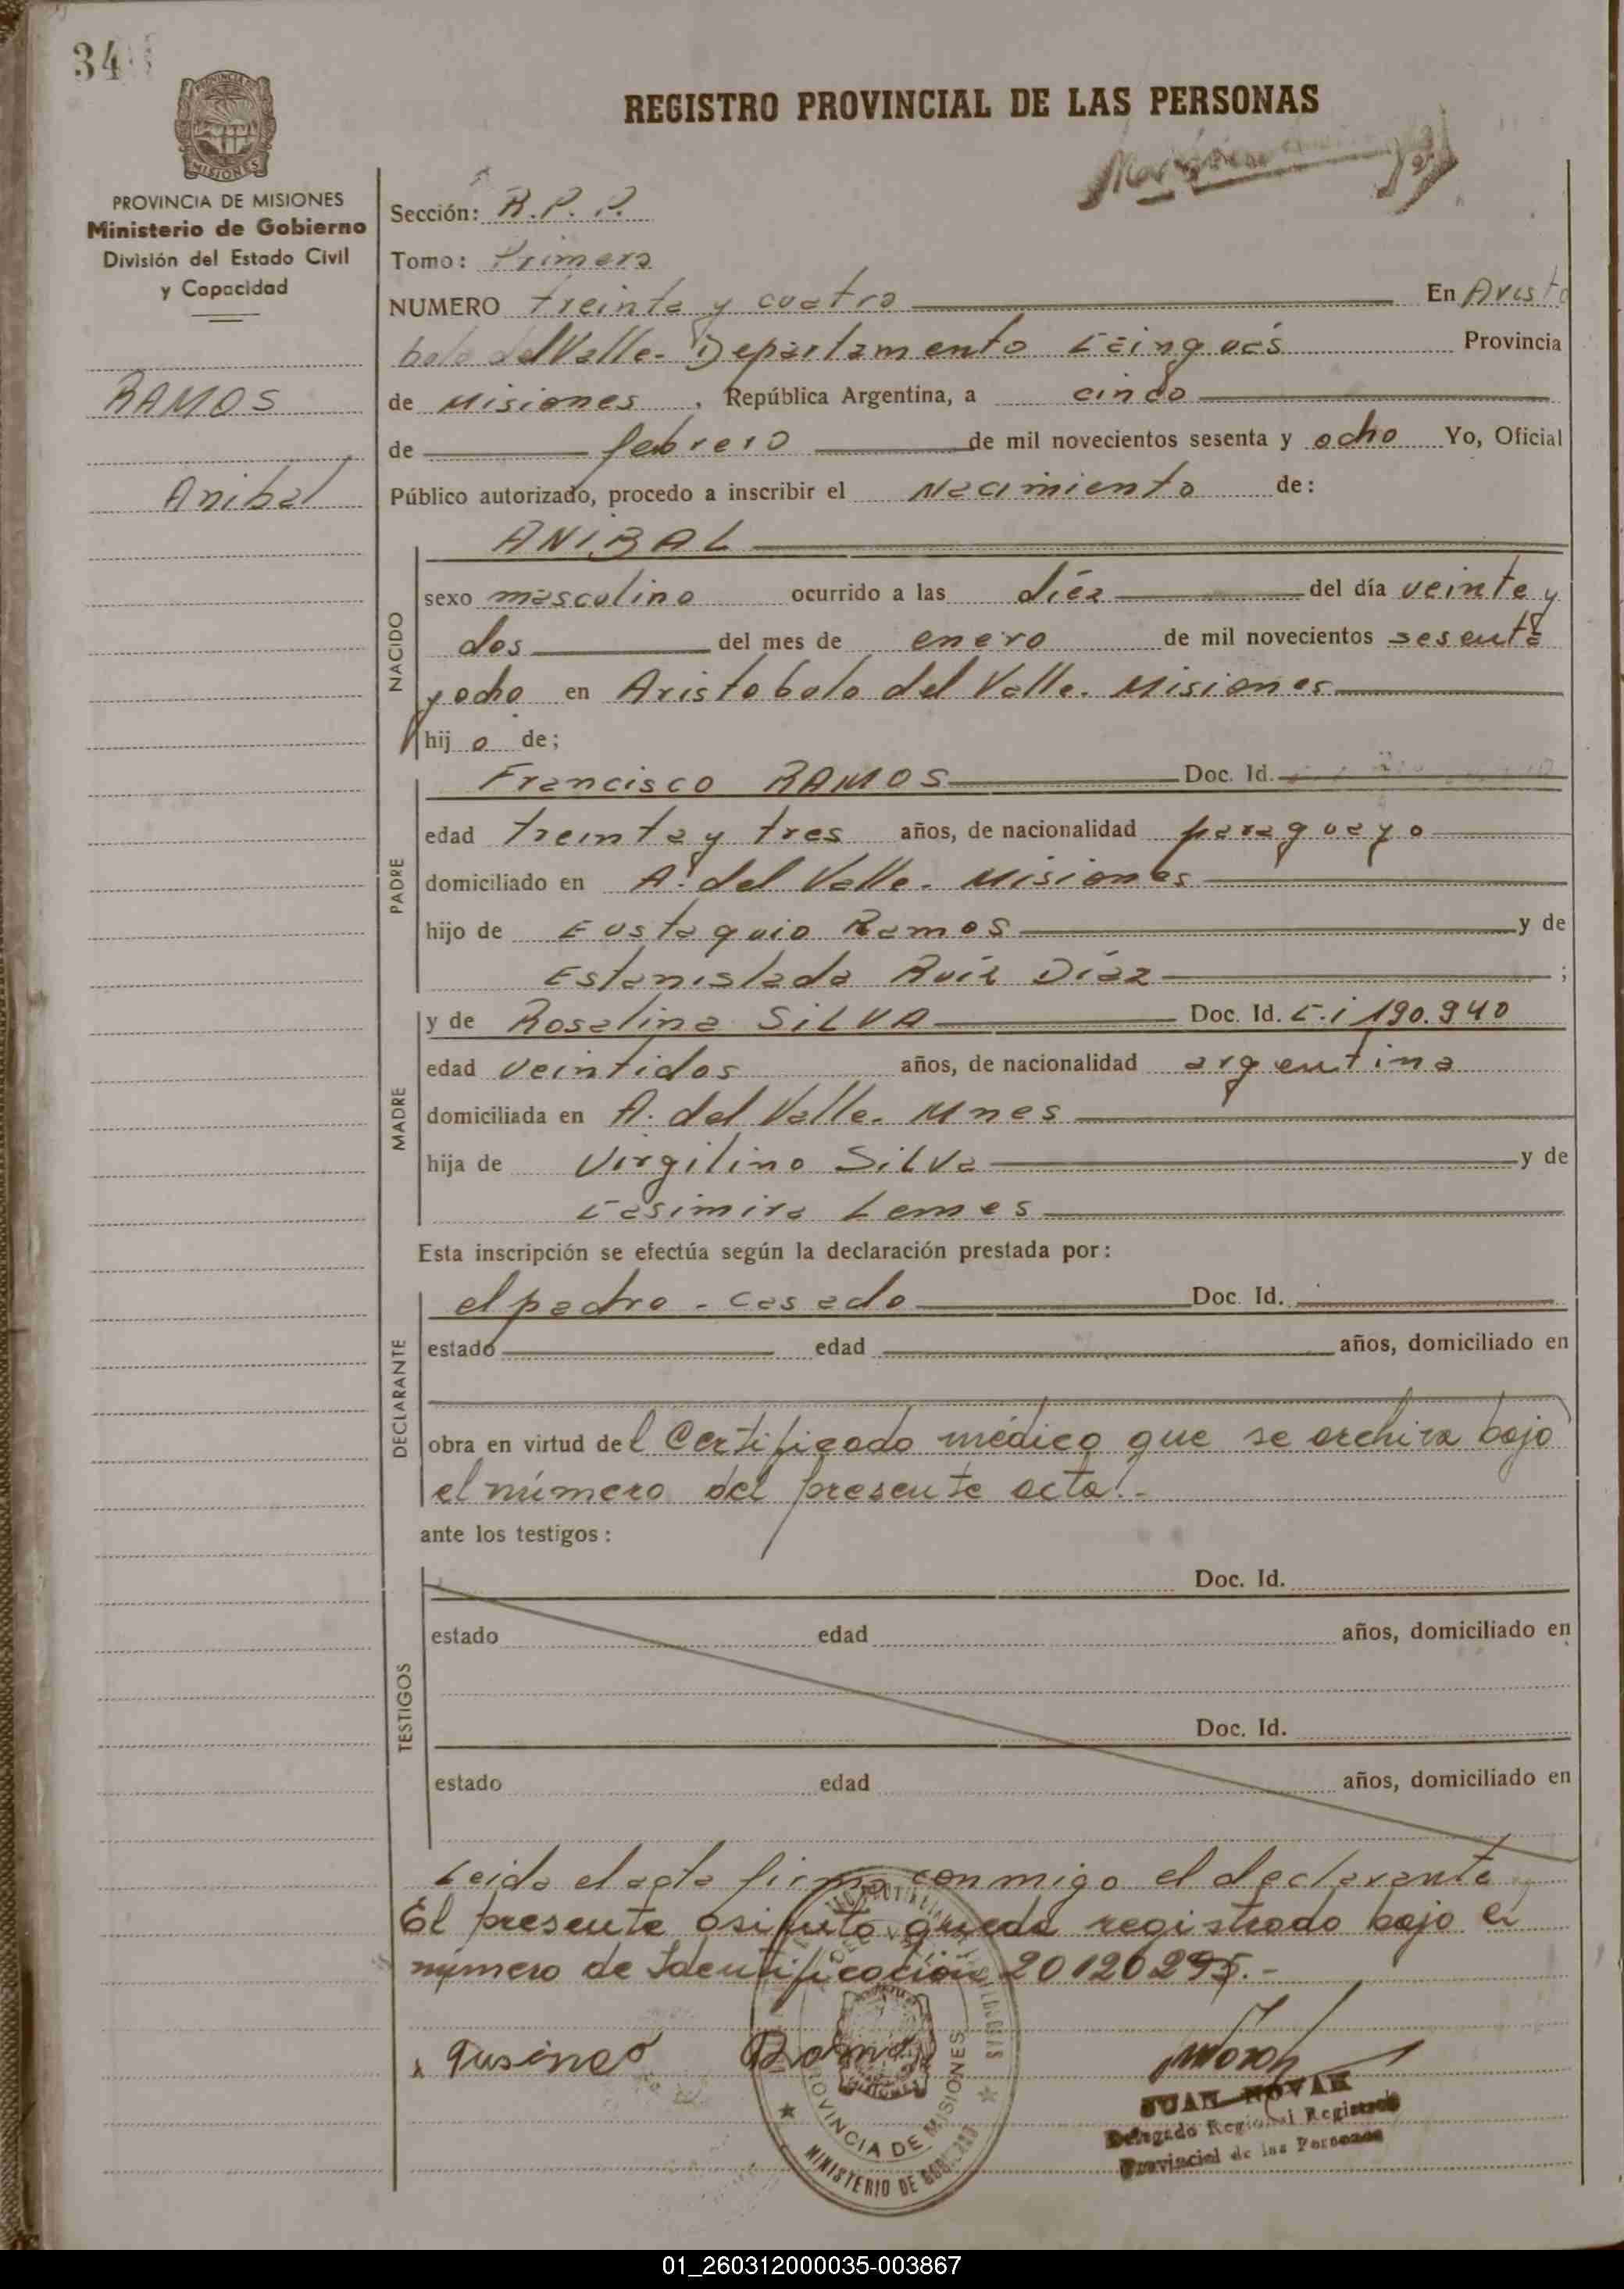 34
PROVINCIA DE MISIONES
Ministerio de Gobierno
División del Estado Civil
y Capacidad
RAMOS
Anibal
REGISTRO PROVINCIAL DE LAS PERSONAS
Sección: R.P.P.
Tomo: Primero
NUMERO treinta y cuatro En Aristo
bolo del Valle. Departamento Cainguás Provincia
de Misiones, República Argentina, a cinco
de febrero de mil novecientos sesenta y ocho Yo, Oficial
Público autorizado, procedo a inscribir el Nacimiento de:
ANIBAL
NACIDO
sexo masculino ocurrido a las diéz del día veinte y
dos del mes de enero de mil novecientos sesenta
y ocho en Aristobolo del Valle. Misiones
hij o de;
PADRE
Francisco RAMOS Doc. Id.
edad treinta y tres años, de nacionalidad paraguayo
domiciliado en A. del Valle. Misiones
hijo de Eustaquio Ramos y de
Estanislada Ruíz Díaz ;
MADRE
y de Roselina SILVA Doc. Id. C.i 190.940
edad veintidos años, de nacionalidad argentina
domiciliada en A. del Valle. Mnes
hija de Virgilino Silva y de
Casimira Lemes
Esta inscripción se efectúa según la declaración prestada por:
DECLARANTE
el padre - casado Doc. Id.
estado edad años, domiciliado en
obra en virtud del Certificado médico que se archiva bajo
el número del presente acta.-
ante los testigos:
TESTIGOS
Doc. Id.
estado edad años, domiciliado en
Doc. Id.
estado edad años, domiciliado en
Leida el acta firma conmigo el declarante
El presente asiento queda registrado bajo el
número de Identificación 20120295.-
PROVINCIA DE MISIONES
MINISTERIO DE GOBIERNO
JUAN NOVAK
Delegado Regional Registro
Provincial de las Personas
01_260312000035-003867